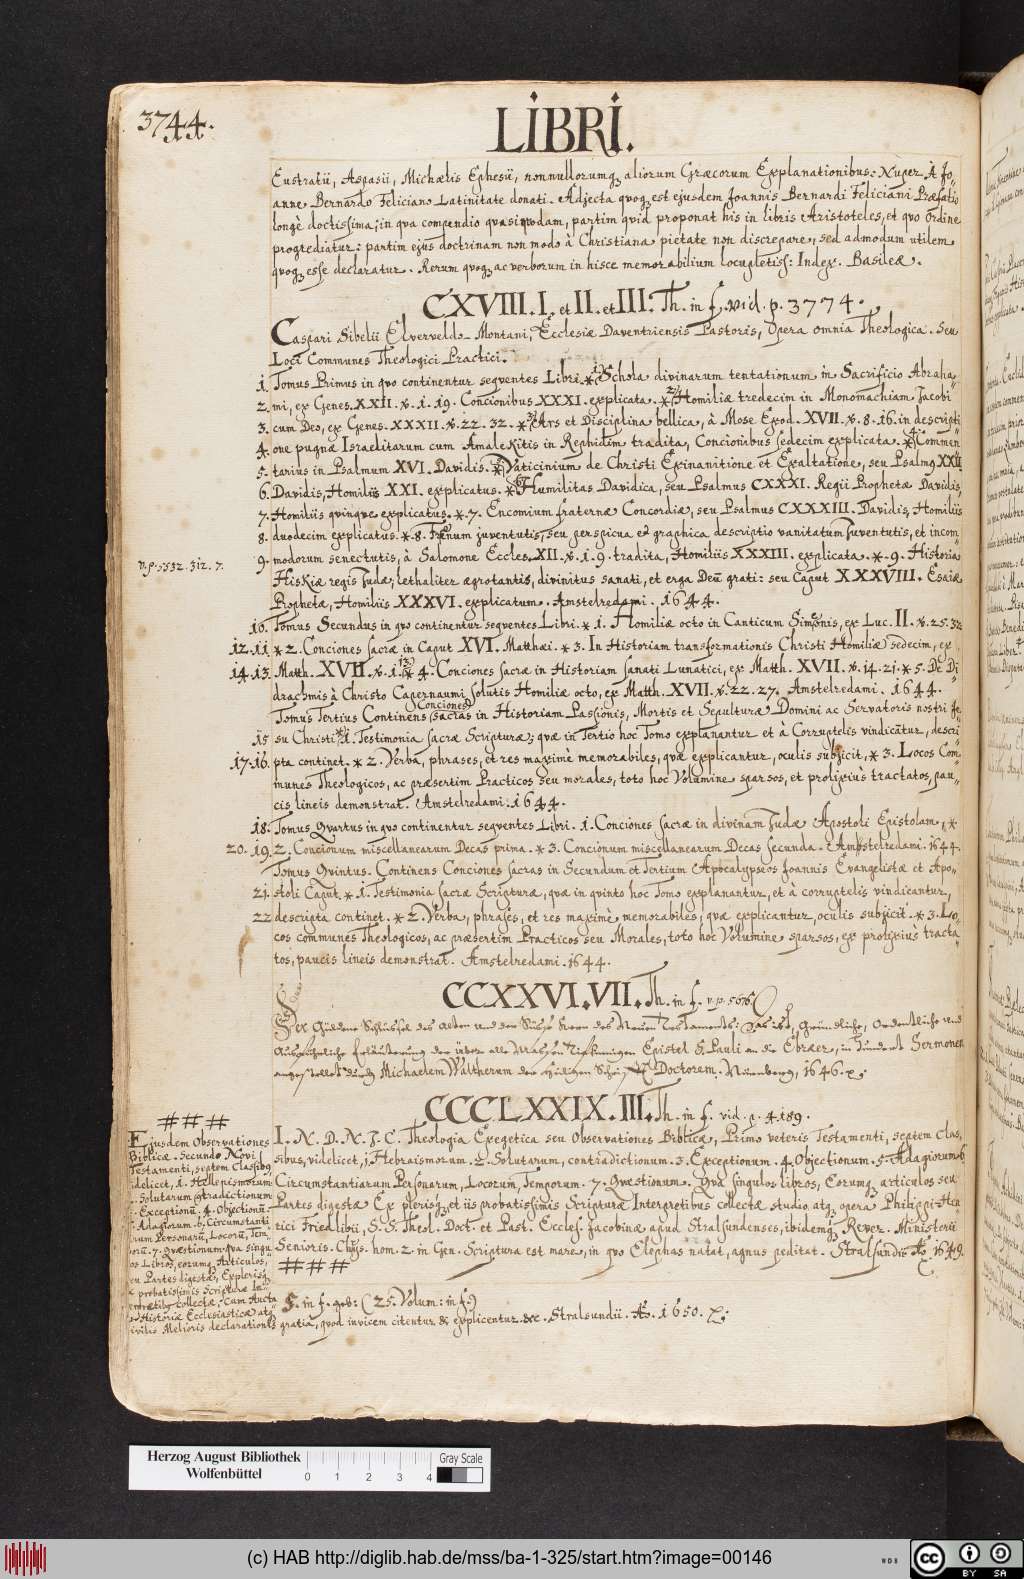 3744.
LIBRI.
Eustratii, Aspasii, Michaelis Ephesii, nonnullorumq; aliorum Græcorum Explanationibus: Nuper À Jo„
anne Bernardo Feliciano Latinitate donati. Adjecta quoq; est ejusdem Joannis Bernardi Feliciani Præfatio
longè doctissima; in qua compendio quasi quodam, partim quid proponat his in libris Aristoteles, et quo Ordine
progrediatur: partim ejus doctrinam non modo à Christiana pietate non discrepare, sed admodum utilem
quoq; esse declaratur. Rerum quoq; ac verborum in hisce memorabilium locupletiss: Index. Basileæ.
CXVIII. I. et II. et III: Th. in f. vid. p. 3774.
Caspari Sibelii Elverveldo-Montani, Ecclesiæ Daventriensis Pastoris, Opera omnia Theologica. Seu
Loci Communes Theologici Practici.
1. Tomus Primus in quo continentur sequentes Libri. * 1) Schola divinarum tentationum in Sacrificio Abraha„
2. mi, ex Genes. XXII. v. 1. 19. Concionibus XXXI. explicata. * 2) Homiliæ tredecim in Monomachiam Jacobi
3. cum Deo, ex Genes. XXXII. v. 22. 32. * 3) Ars et Disciplina bellica, à Mose Exod. XVII. v. 8. 16. in descripti„
4. one pugnæ Israelitarum cum Amalekitis in Rephidim tradita, Concionibus sedecim explicata. * 4) Commen„
5. tarius in Psalmum XVI. Davidis. * 5) Vaticinium de Christi Exinanitione et Exaltatione, seu Psalmq XXII.
6. Davidis, Homiliis XXI. explicatus. * 6) Humilitas Davidica, seu Psalmus CXXXI. Regii Prophetæ Davidis,
7. Homiliis quinque explicatus. * 7. Encomium fraternæ Concordiæ, seu Psalmus CXXXIII. Davidis, Homiliis
8. duodecim explicatus. * 8. Frenum juventutis, seu perspicua et graphica descriptio vanitatum Juventutis, et incom„
n. p. 5532. 312. 7.
9. modorum senectutis, à Salomone Eccles. XII. v. 1. 9. tradita, Homiliis XXXIII. explicata. * 9. Historia
Hiskiæ regis Judæ, lethaliter ægrotantis, divinitus sanati, et erga Deū grati: seu Caput XXXVIII. Esaiæ
Prophetæ, Homiliis XXXVI. explicatum. Amstelredami. 1644.
10. Tomus Secundus in quo continentur sequentes Libri. * 1. Homiliæ octo in Canticum Simeonis, ex Luc. II. v. 25. 32
12. 11. * 2. Conciones sacræ in Caput XVI. Matthæi. * 3. In Historiam transformationis Christi Homiliæ sedecim, ex
14. 13. Matth. XVII. v. 1. 13. * 4. Conciones sacræ in Historiam sanati Lunatici, ex Matth. XVII. v. 14. 21. * 5. De Di„
drachmis à Christo Capernaumi solutis Homiliæ octo, ex Matth. XVII. v. 22. 27. Amstelredami. 1644.
Tomus Tertius Continens Conciones sacras in Historiam Passionis, Mortis et Sepulturæ Domini ac Servatoris nostri Je„
15 su Christi. * 1. Testimonia sacræ Scripturæ; quæ in Tertio hoc Tomo explanantur et à Corruptelis vindicātur, descri„
17. 16. pta continet. * 2. Verba, phrases, et res maximè memorabiles, quæ explicantur, oculis subjicit, * 3. Locos Com„
munes Theologicos, ac præsertim Practicos seu morales, toto hoc Volumine sparsos, et prolixiùs tractatos, pau„
cis lineis demonstrat. Amstelredami. 1644.
18. Tomus Quartus in quo continentur sequentes Libri. 1. Conciones sacræ in divinam Judæ Apostoli Epistolam, *
20. 19. 2. Concionum miscellanearum Decas prima. * 3. Concionum miscellanearum Decas secunda. Amstelredami. 1644.
Tomus Quintus. Continens Conciones sacras in Secundum et Tertium Apocalypseos Joannis Evangelistæ et Apo„
21. stoli Caput. * 1. Testimonia sacræ Scripturæ, quæ in quinto hoc Tomo explanantur, et à corruptelis vindicantur,
22 descripta continet. * 2. Verba, phrases, et res maximè memorabiles, quæ explicantur, oculis subjicit. * 3. Lo„
cos communes Theologicos, ac præsertim Practicos seu Morales, toto hoc Volumine sparsos, ex prolixiùs tracta„
tos, paucis lineis demonstrat. Amstelredami. 1644.
CCXXVI. VII. Th. in f. v. p. 5676
Der Güldene Schlüssel des Alten und der Süsse Kern des Neuen Testaments: Das ist, Gründliche, Ordentliche und
Ausführliche Erläuterung der über alle Massen Tiefsinnigen Epistel S. Pauli an die Ebræer, in hundert Sermonen
angestellet durch Michaelem Waltherum der Heiligen Schrifft Doctorem. Nürnberg, 1646.
CCCLXXIX. III. Th. in f. vid. p. 4189.
I. N. D. N. J. C. Theologia Exegetica seu Observationes Biblicæ, Primo veteris Testamenti, septem Clas„
sibus, videlicet, 1. Hebraismorum. 2. Solutarum, contradictionum. 3. Exceptionum. 4. Objectionum. 5. Adagiorum. 6.
Circumstantiarum Personarum, Locorum, Temporum. 7. Quæstionum. Quà singulos libros, Eorumq; articulos seu
Partes digestæ Ex plerisq; et iis probatissimis Scripturæ Interpretibus collectæ studio atq; opera Philippi-Hen
rici Friedlibii, S. S. Theol. Doct. et Past. Eccles. Jacobinæ apud Stralsundenses, ibidemq; Rever. Ministerii
Senioris. Chrys. hom. 2. in Gen. Scriptura est mare, in quo Elephas natat, agnus peditat. Stralsundii Ao. 1649.
# # #
# # #
Ejusdem Observationes
Biblicæ. Secundo Novi
Testamenti, septem Classibq
videlicet, 1. Hellenismorum
2. Solutarum contradictionum
3. Exceptionū. 4. Objectionū.
5. Adagiorum. 6. Circumstanti
arum Personarū, Locorū, Tem
porū. 7. Quæstionum. Qua singu
los Libros, eorumq; Articulos,
seu Partes digestæ, Explerisq;
et probatissimis Scripturæ In„
terpretibq collectæ, Cum Aucta
Historiæ Ecclesiasticæ atq;
civilis Melioris declarationis gratia, quod invicem citentur & explicentur. &c. Stralsundii. Ao. 1650.
F. in f. gob: (25. Volum: in f.)
Herzog August Bibliothek
Wolfenbüttel
0 1 2 3 4
Gray Scale
(c) HAB http://diglib.hab.de/mss/ba-1-325/start.htm?image=00146
WDB
cc BY SA